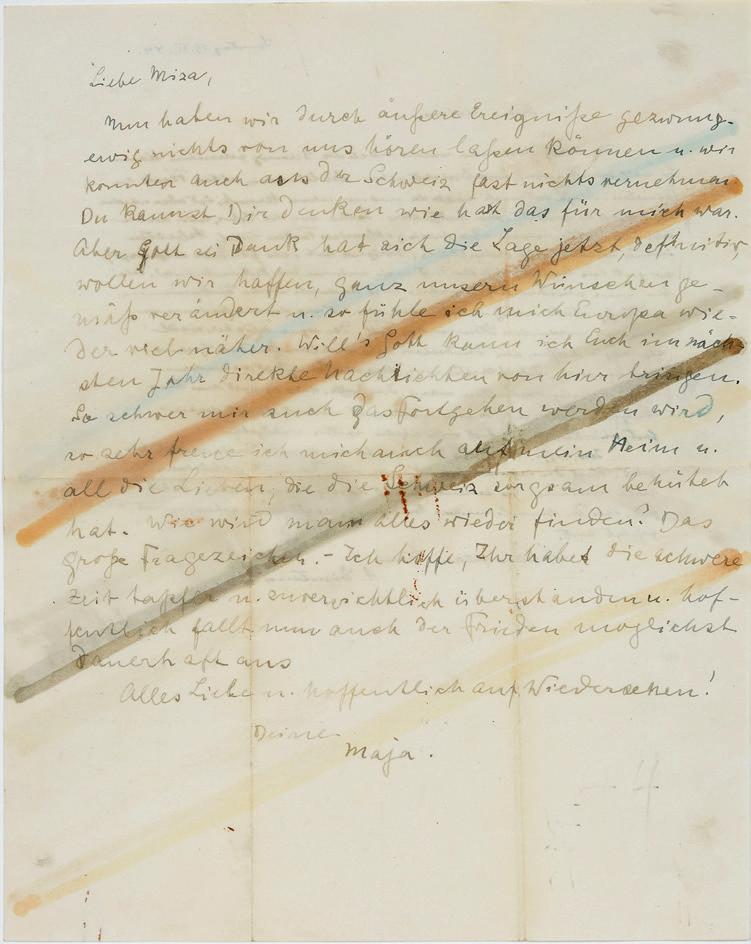 Liebe Miza,
Nun haben wir durch äußere Ereigniße gezwung.
ewig nichts von uns hören laßen können u. wir
konnten auch aus der Schweiz fast nichts vernehmen.
Du kannst Dir denken wie hart das für mich war.
Aber Gott sei Dank hat sich die Lage jetzt, definitiv,
wollen wir hoffen, ganz unsern Wünschen ge-
mäß verändert u. so fühle ich mich Europa wie-
der viel näher. Will's Gott kann ich Euch im näch-
sten Jahr direkte Nachrichten von hier bringen.
So schwer mir auch das Fortgehen werden wird,
so sehr freue ich mich auch auf mein Heim u.
all die Lieben, die die Schweiz sorgsam behütet
hat. Wie wird man alles wieder finden? Das
große Fragezeichen. – Ich hoffe, Ihr habet die schwere
Zeit tapfer u. zuversichtlich überstanden u. hof-
fentlich fällt nun auch der Frieden möglichst
dauerhaft aus
Alles Liebe u. hoffentlich auf Wiedersehen!
Deine
Maja.